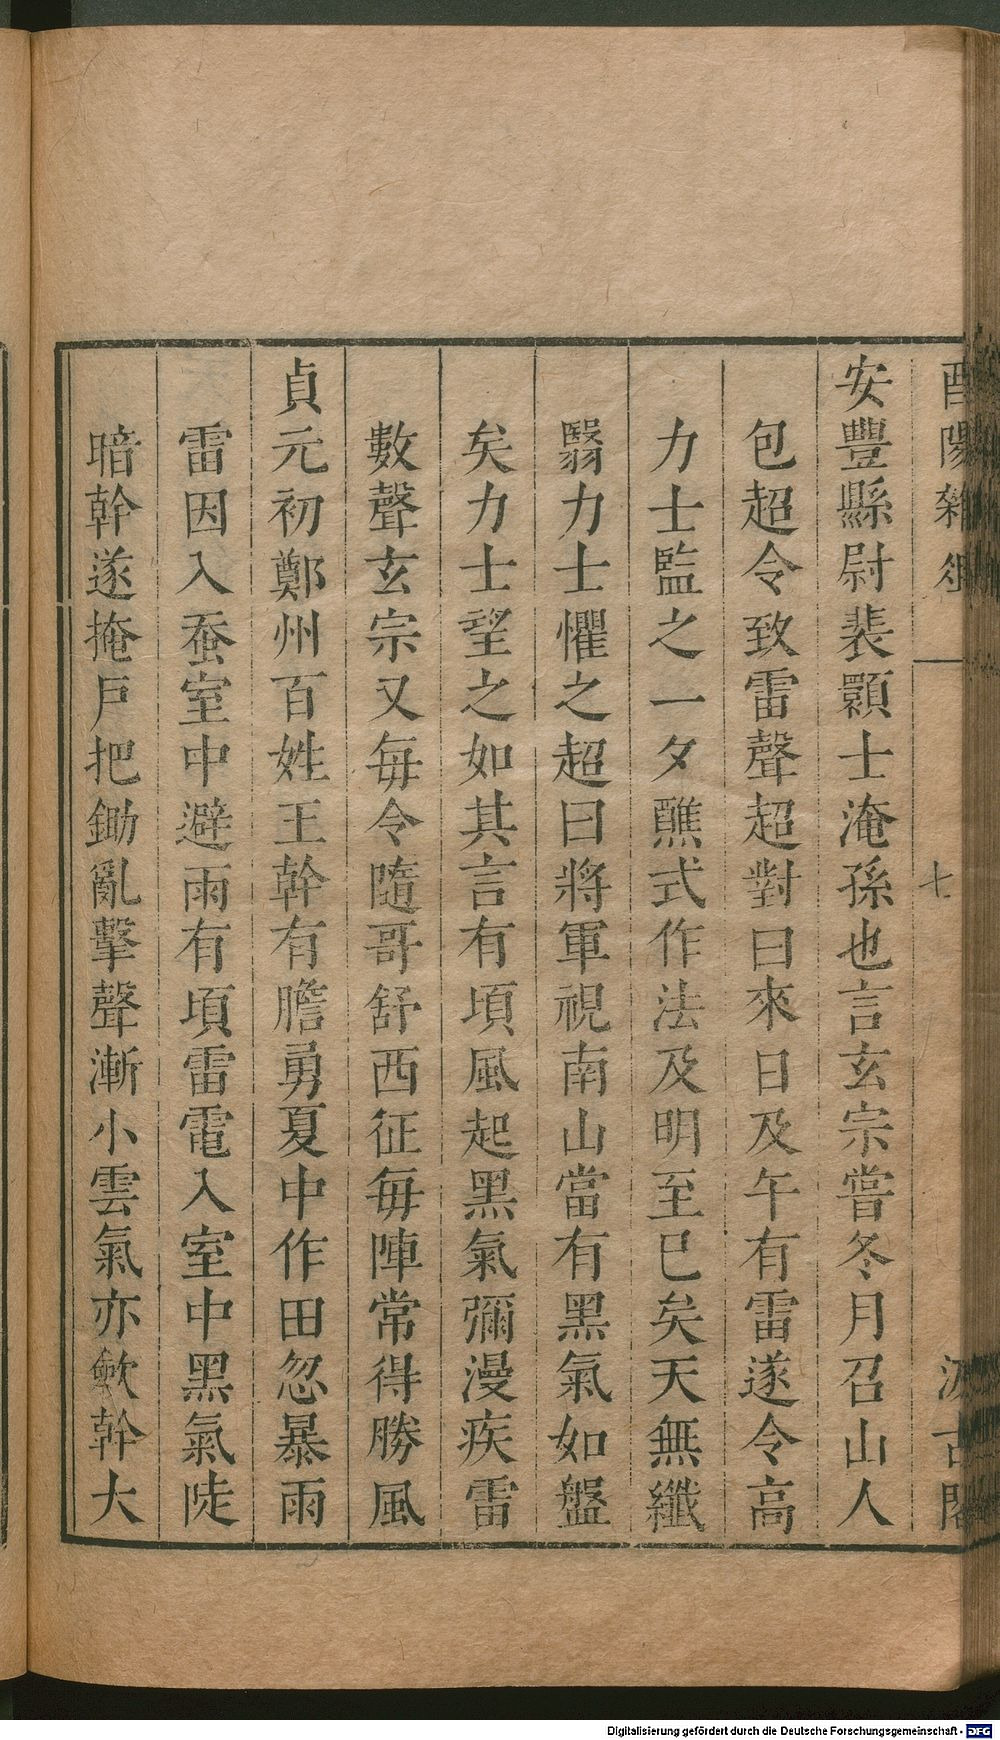 安豐縣尉裴顥士淹孫也言玄宗嘗冬月召山人
包超令致雷聲超對曰來日及午有雷遂令高
力士監之一夕醮式作法及明至巳矣天無纖
翳力士懼之超曰將軍視南山當有黑氣如盤
矣力士望之如其言有頃風起黑氣彌漫疾雷
數聲玄宗又每令隨哥舒西征每陣常得勝風
貞元初鄭州百姓王幹有膽勇夏中作田忽暴雨
雷因入蚕室中避雨有頃雷電入室中黑氣陡
暗幹遂掩戶把鋤亂擊聲漸小雲氣亦歛幹大
酉陽雜俎
七
汲古閣
Digitalisierung gefördert durch die Deutsche Forschungsgemeinschaft - DFG